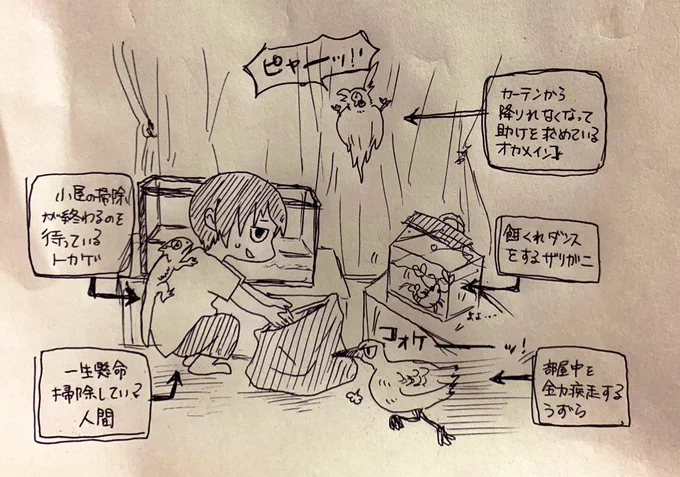 ピャーーッ!!
カーテンから
降りれなくなって
助けを求めている
オカメインコ
小屋の掃除
が終わるのを
待っている
トカゲ
餌くれダンス
をするザリガニ
コォケ
一生懸命
掃除している
人間
部屋中を
全力疾走する
うずら